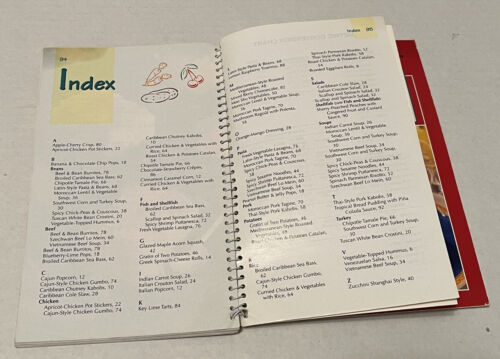 84
Index
A
Apple-Cherry Crisp, 80
Apricot-Chicken Pot Stickers, 22
B
Banana & Chocolate Chip Pops, 18
Beans
Beef & Bean Burritos, 78
Broiled Caribbean Sea Bass, 62
Chipotle Tamale Pie, 66
Latin-Style Pasta & Beans, 48
Moroccan Lentil & Vegetable
Soup, 36
Southwest Corn and Turkey Soup,
30
Spicy Chick-Peas & Couscous, 38
Spicy Mexican Frittata, 52
Tuscan White Bean Crostini, 20
Vegetable-Topped Hummus, 6
Beef
Beef & Bean Burritos, 78
Szechwan Beef Lo Mein, 60
Vietnamese Beef Soup, 34
Blueberry-Lime Pops, 18
Broiled Caribbean Sea Bass, 62
C
Cajun Popcorn, 12
Cajun-Style Chicken Gumbo, 74
Caribbean Chutney Kabobs, 10
Caribbean Cole Slaw, 28
Chicken
Apricot-Chicken Pot Stickers, 22
Cajun-Style Chicken Gumbo, 74
Caribbean Chutney Kabobs,
10
Curried Chicken & Vegetables with
Rice, 64
Roast Chicken & Potatoes Catalan,
54
Chipotle Tamale Pie, 66
Chocolate-Strawberry Crêpes,
86
Cinnamon Caramel Corn, 12
Curried Chicken & Vegetables with
Rice, 64
F
Fish and Shellfish
Broiled Caribbean Sea Bass,
62
Scallop and Spinach Salad, 32
Spicy Shrimp Puttanesca, 72
Fresh Vegetable Lasagna, 76
G
Glazed Maple Acorn Squash,
42
Gratin of Two Potatoes, 46
Greek Spinach-Cheese Rolls, 14
I
Indian Carrot Soup, 26
Italian Crouton Salad, 24
Italian Popcorn, 12
K
Key Lime Tarts, 84
Index 95
L
Latin-Style Pasta & Beans, 48
M
Moroccan Pork Tagine, 70
Orange-Mango Dressing, 28
Pasta
Fresh Vegetable Lasagna, 76
Latin-Style Pasta & Beans, 48
Moroccan Pork Tagine, 70
Spicy Chick-Peas & Couscous,
38
Spicy Sesame Noodles, 44
Spicy Shrimp Puttanesca, 72
Szechwan Beef Lo Mein, 60
Vietnamese Beef Soup, 34
Pork
Moroccan Pork Tagine, 70
Thai-Style Pork Kabobs, 58
Potatoes
Gratin of Two Potatoes, 46
Roast Chicken & Potatoes Catalan,
54
Broiled Caribbean Sea Bass,
62
Cajun-Style Chicken Gumbo,
74
Curried Chicken & Vegetables
with Rice, 64
Spinach Parmesan Risotto, 52
Thai-Style Pork Kabobs, 58
Roast Chicken & Potatoes Catalan,
54
Roasted Eggplant Rolls, 8
S
Salads
Caribbean Cole Slaw, 28
Italian Crouton Salad, 24
Scallop and Spinach Salad, 32
Shellfish (see Fish and Shellfish)
Sherry Poached Peaches with
Gingered Fruit and
Custard Sauce, 90
Soups
Indian Carrot Soup, 26
Moroccan Lentil & Vegetable
Soup, 36
Southwest Corn and Turkey Soup,
30
Vietnamese Beef Soup, 34
Southwest Corn and Turkey Soup,
30
Spicy Chick-Peas & Couscous, 38
Spicy Mexican Frittata, 52
Spicy Sesame Noodles, 44
Spicy Shrimp Puttanesca, 72
Spinach Parmesan Risotto, 52
Szechwan Beef Lo Mein, 60
T
Thai-Style Pork Kabobs, 58
Tropical Bread Pudding with Piña
Colada Sauce, 92
Turkey
Chipotle Tamale Pie, 66
Southwest Corn and Turkey Soup,
30
Tuscan White Bean Crostini, 20
V
Vegetable-Topped Hummus, 6
Venezuelan Salsa, 16
Vietnamese Beef Soup, 34
Z
Zucchini Shanghai Style, 40